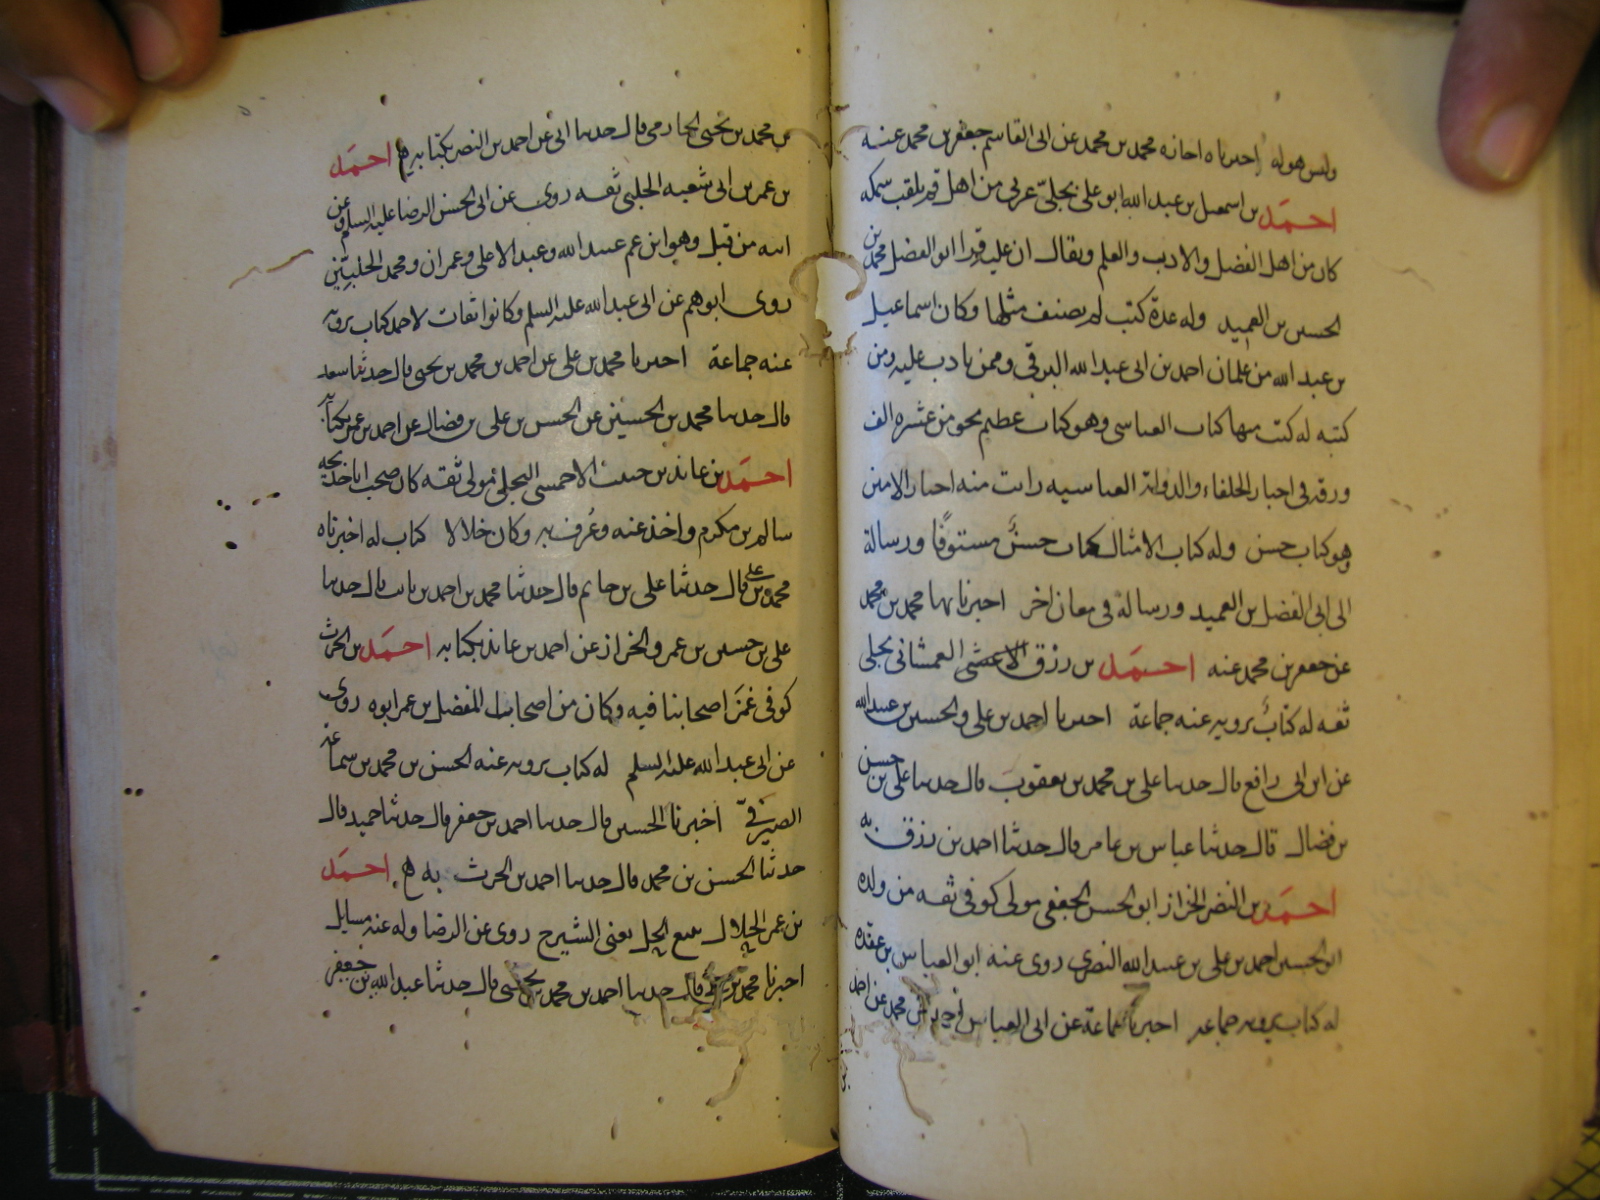 وليس هو له اخبرناه اجازه محمد بن محمد عن ابى القاسم جعفر بن محمد عنه
احمد بن اسمعيل بن عبد الله ابو على بجلىّ عربى من اهل قم يلقب سمكه
كان من اهل الفضل والادب والعلم ويقال ان عليه قرا ابو الفضل محمد بن
الحسين بن العميد وله عدة كتب لم يصنف مثلها وكان اسماعيل
بن عبد الله من غلمان احمد بن ابى عبد الله البرقى وممن تادب عليه ومن
كتبه له كتب منها كتاب العباسى وهو كتاب عظيم نحو من عشره الف
ورقه فى اخبار الخلفاء والدولة العباسيه رايت منه اخبار الامين
وهو كتاب حسن وله كتاب الامثال كتاب حسنٌ مستوفًا ورسالة
الى ابى الفضل بن العميد ورسالة فى معان اخر اخبرنا بها محمد بن محمد
عن جعفر بن محمد عنه احمد بن رزق الغمشانى بجلى
ثقه له كتابٌ يرويه عنه جماعة اخبرنا احمد بن على والحسين بن عبيد الله
عن ابن ابى رافع قال حدثنا على بن محمد بن يعقوب قال حدثنا على بن حسن
بن فضال قال حدثنا عباس بن عامر قال حدثنا احمد بن رزق به
احمد بن النضر الخزاز ابو الحسن الجعفى مولى كوفى ثقه من ولده
ابو الحسين احمد بن على بن عبيد الله النضرى روى عنه ابو العباس بن عقده
له كتاب يرويه جماعه اخبرنا جماعة عن ابى العباس احمد بن محمد عن احمد
بن محمد بن يحيى الخازمى قال حدثنا ابى عن احمد بن النضر بكتابه احمد
بن عمر بن ابى شعبه الحلبى ثقه روى عن ابى الحسن الرضا عليه السلم وعن
ابيه من قبل وهو ابن عم عبيد الله وعبد الاعلى وعمران ومحمد الحلبيّين
روى ابوهم عن ابى عبد الله عليه السلم وكانوا ثقات لاحمد كتاب يرويه
عنه جماعة اخبرنا محمد بن على عن احمد بن محمد بن يحيى قال حدثنا سعد
قال حدثنا محمد بن الحسين عن الحسن بن على بن فضال عن احمد بن عمر بكتابه
احمد بن عايذ بن حبيب الاحمسى البجلى مولى ثقه كان صحب ابا خديجه
سالم بن مكرم واخذ عنه وعُرف به وكان خلالا كتاب له اخبرناه
محمد بن على قال حدثنا على بن حاتم قال حدثنا محمد بن احمد بن ثابت قال حدثنا
على بن حسين بن عمرو الخزاز عن احمد بن عايذ بكتابه احمد بن الحرث
كوفى غمز اصحابنا فيه وكان من اصحاب المفضل بن عمر ابوه روى
عن ابى عبد الله عليه السلم له كتاب يرويه عنه الحسن بن محمد بن سماعه
الصيرفىّ اخبرنا الحسين قال حدثنا احمد بن جعفر قال حدثنا حميد قال
حدثنا الحسن بن محمد قال حدثنا احمد بن الحرث به احمد
بن عمر الحلال يبيع الحل يعنى الشيرج روى عن الرضا وله عنه مسايل
اخبرنا محمد بن على قال حدثنا احمد بن محمد بن يحيى قال حدثنا عبد الله بن جعفر